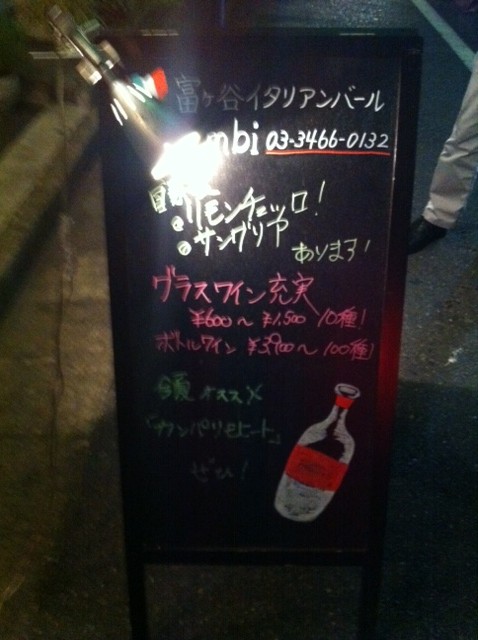 富ヶ谷イタリアンバール
mbi 03-3466-0132
リモンチェッロ!
サングリア
あります!
グラスワイン充実
¥600〜¥1,500 10種!
ボトルワイン ¥3900〜 100種!
今夏オススメ
「カンパリモヒート」
ぜひ!